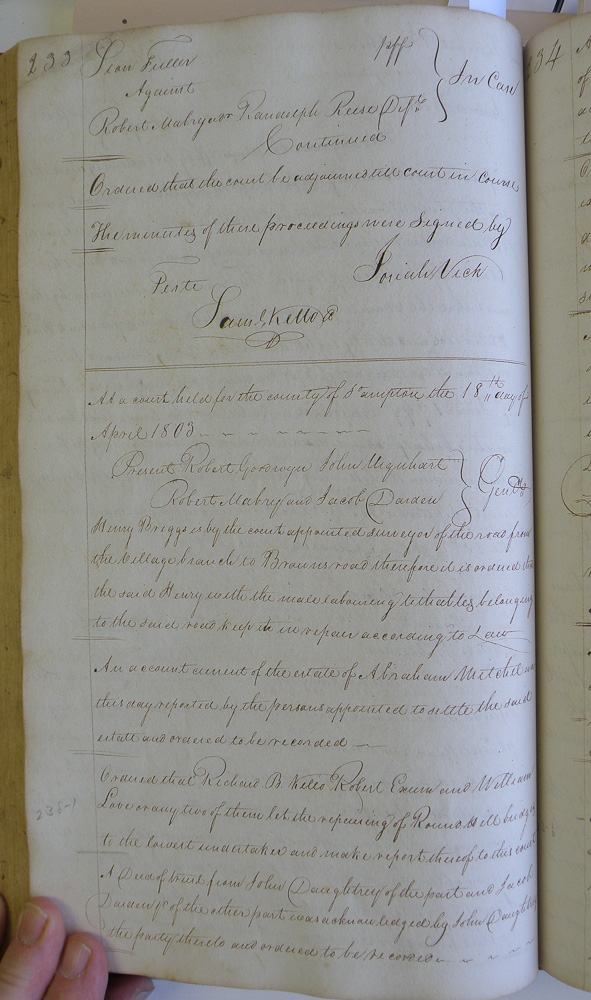 233
Jean Fuller plff
Against } In Case
Robert Mabry exor Randolph Reese Deft
Continued
Ordered that the court be adjourned till court in Course
The minutes of these proceedings were signed by
Josiah Vick
Teste
Saml Kello
At a court held for the county of So ampton the 18th day of
April 1803
Present Robert Goodwyn John Urquhart } Gent
Robert Mabry and Jacob Darden
Henry Briggs is by the court appointed surveyor of the road from
the village branch to Browns road therefore it is ordered that
the said Henry with the male labouring tithables belonging
to the said road keep it in repair according to Law
An account current of the estate of Abraham Mitchel was
this day reported by the persons appointed to settle the said
estate and ordered to be recorded
Ordered that Richard B. Kello Robert Exum and William
Love or any two of them let the repairing of Round Hill bridge
to the lowest undertaker and make report thereof to this court
A Deed of trust from John Daughtrey of the part and Jacob
Darden &c of the other part was acknowledged by John Daughtrey
the party thereto and ordered to be recorded
234